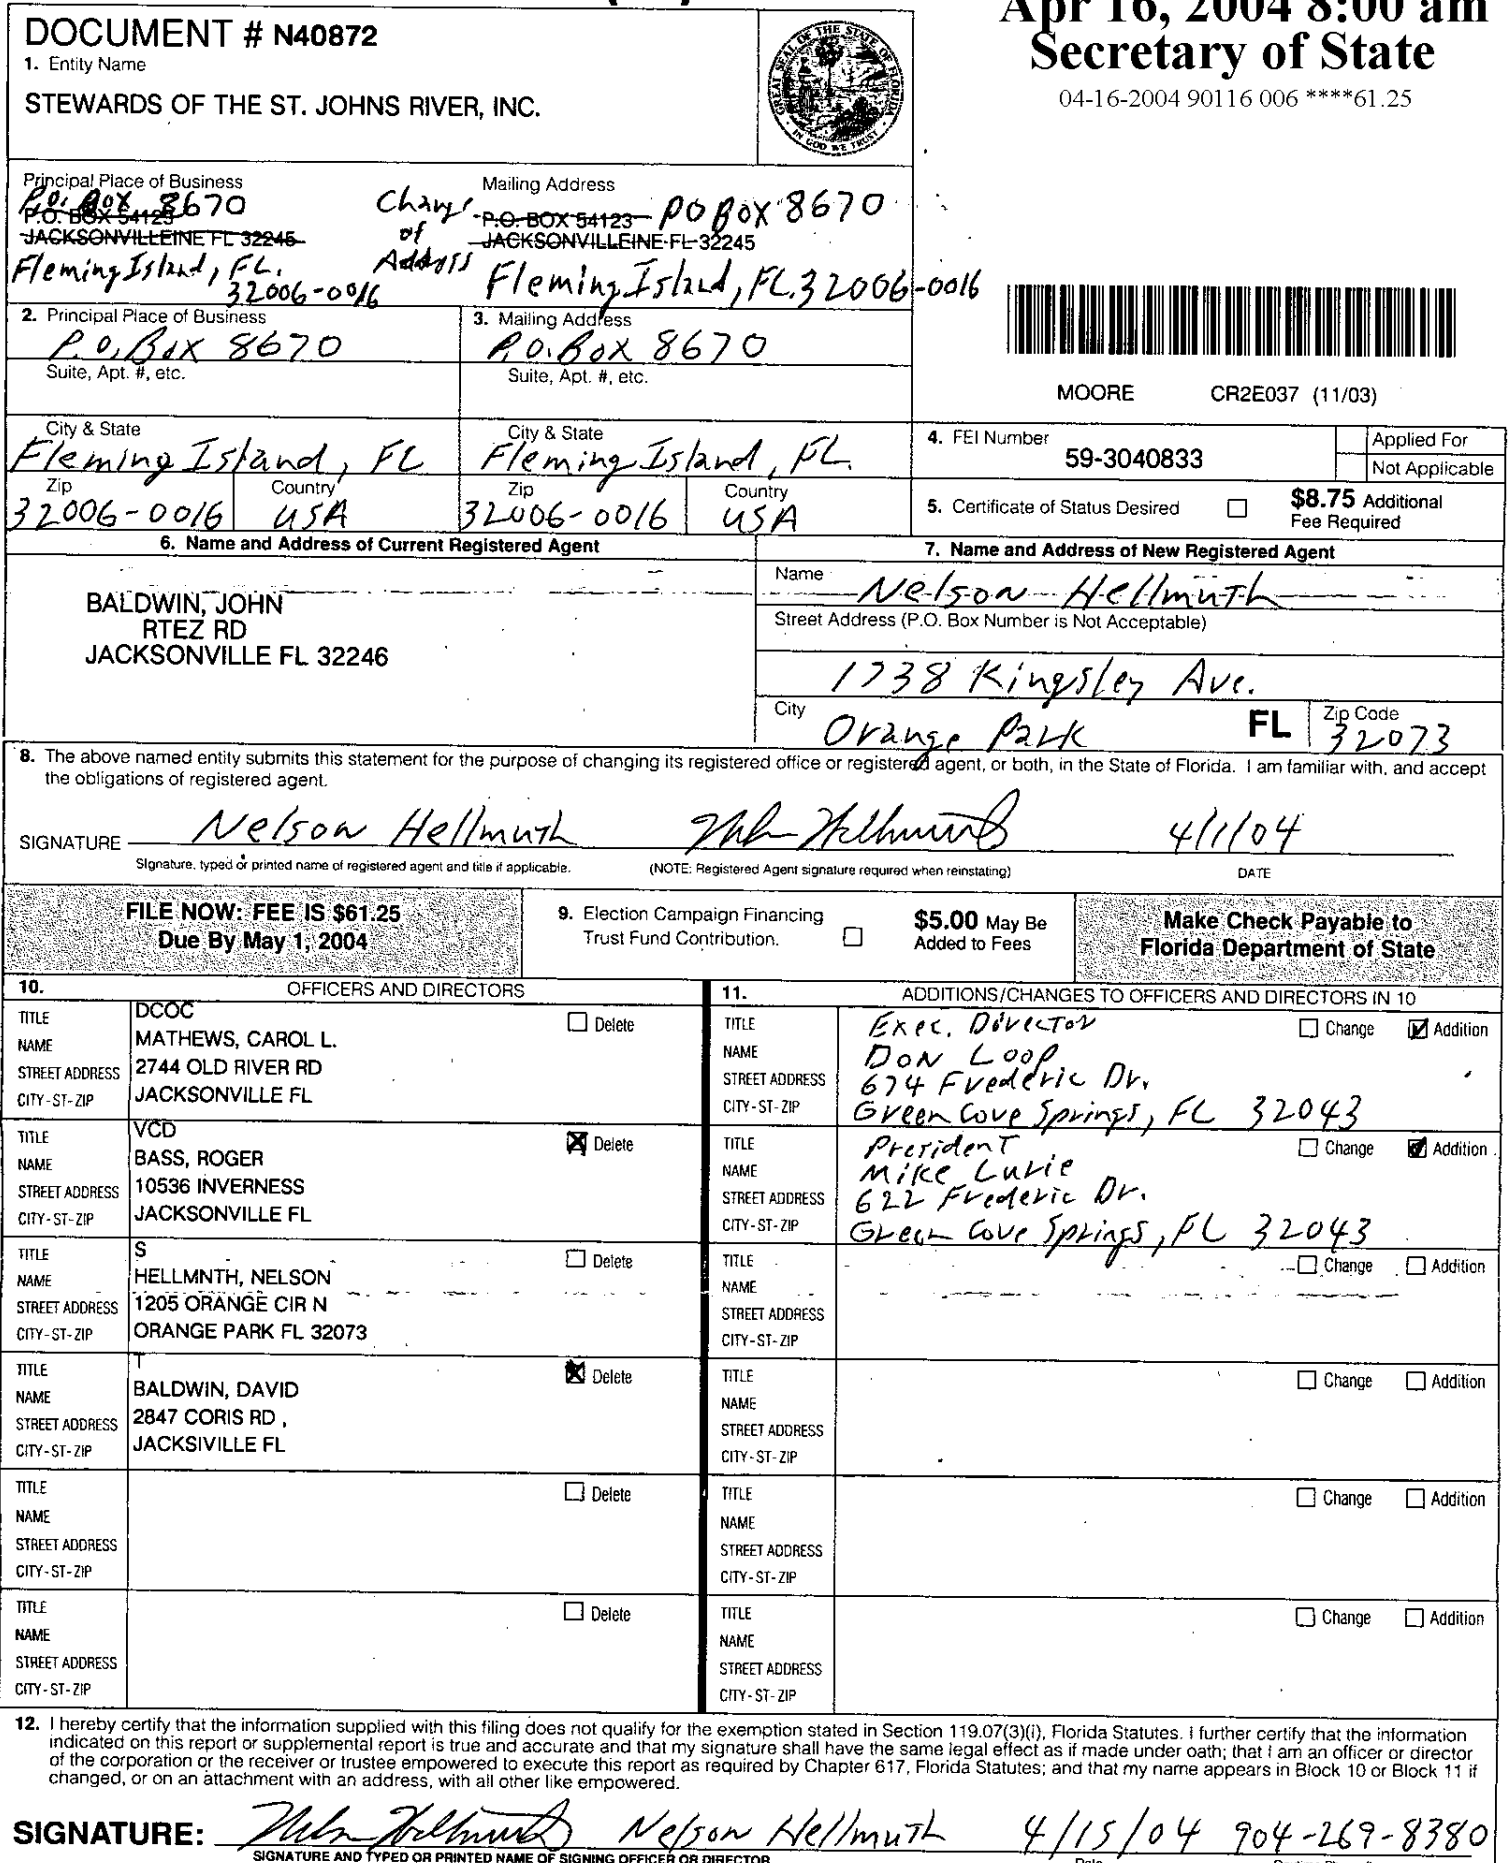 Apr 16, 2004 8:00 am
Secretary of State
04-16-2004 90116 006 ****61.25
DOCUMENT # N40872
1. Entity Name
STEWARDS OF THE ST. JOHNS RIVER, INC.
GREAT SEAL OF THE STATE OF FLORIDA
IN GOD WE TRUST
Principal Place of Business
P.O. Box 8670
P.O. BOX 54123
JACKSONVILLEINE FL 32245
Fleming Island, FL.
32006-0016
Change
of
Address
Mailing Address
P.O. BOX 54123 PO BOX 8670
JACKSONVILLEINE FL 32245
Fleming Island, FL. 32006-0016
2. Principal Place of Business
P.O. Box 8670
Suite, Apt. #, etc.
3. Mailing Address
P.O. Box 8670
Suite, Apt. #, etc.
MOORE CR2E037 (11/03)
City & State
Fleming Island, FL
City & State
Fleming Island, FL.
Zip
32006-0016
Country
USA
Zip
32006-0016
Country
USA
4. FEI Number
59-3040833
Applied For
Not Applicable
5. Certificate of Status Desired
$8.75 Additional
Fee Required
6. Name and Address of Current Registered Agent
BALDWIN, JOHN
RTEZ RD
JACKSONVILLE FL 32246
7. Name and Address of New Registered Agent
Name
Nelson Hellmuth
Street Address (P.O. Box Number is Not Acceptable)
1738 Kingsley Ave.
City
Orange Park
FL
Zip Code
32073
8. The above named entity submits this statement for the purpose of changing its registered office or registered agent, or both, in the State of Florida. I am familiar with, and accept
the obligations of registered agent.
SIGNATURE Nelson Hellmuth Nelson Hellmuth 4/1/04
Signature, typed or printed name of registered agent and title if applicable. (NOTE: Registered Agent signature required when reinstating) DATE
FILE NOW: FEE IS $61.25
Due By May 1, 2004
9. Election Campaign Financing
Trust Fund Contribution.
$5.00 May Be
Added to Fees
Make Check Payable to
Florida Department of State
10. OFFICERS AND DIRECTORS
TITLE DCOC Delete
NAME MATHEWS, CAROL L.
STREET ADDRESS 2744 OLD RIVER RD
CITY-ST-ZIP JACKSONVILLE FL
TITLE VCD Delete
NAME BASS, ROGER
STREET ADDRESS 10536 INVERNESS
CITY-ST-ZIP JACKSONVILLE FL
TITLE S Delete
NAME HELLMNTH, NELSON
STREET ADDRESS 1205 ORANGE CIR N
CITY-ST-ZIP ORANGE PARK FL 32073
TITLE T Delete
NAME BALDWIN, DAVID
STREET ADDRESS 2847 CORIS RD ,
CITY-ST-ZIP JACKSIVILLE FL
TITLE Delete
NAME
STREET ADDRESS
CITY-ST-ZIP
TITLE Delete
NAME
STREET ADDRESS
CITY-ST-ZIP
11. ADDITIONS/CHANGES TO OFFICERS AND DIRECTORS IN 10
TITLE Exec. Director Change Addition
NAME Don Loop
STREET ADDRESS 674 Frederic Dr.
CITY-ST-ZIP Green Cove Springs, FL 32043
TITLE President Change Addition
NAME Mike Lurie
STREET ADDRESS 622 Frederic Dr.
CITY-ST-ZIP Green Cove Springs, FL 32043
TITLE Change Addition
NAME
STREET ADDRESS
CITY-ST-ZIP
TITLE Change Addition
NAME
STREET ADDRESS
CITY-ST-ZIP
TITLE Change Addition
NAME
STREET ADDRESS
CITY-ST-ZIP
TITLE Change Addition
NAME
STREET ADDRESS
CITY-ST-ZIP
12. I hereby certify that the information supplied with this filing does not qualify for the exemption stated in Section 119.07(3)(i), Florida Statutes. I further certify that the information
indicated on this report or supplemental report is true and accurate and that my signature shall have the same legal effect as if made under oath; that I am an officer or director
of the corporation or the receiver or trustee empowered to execute this report as required by Chapter 617, Florida Statutes; and that my name appears in Block 10 or Block 11 if
changed, or on an attachment with an address, with all other like empowered.
SIGNATURE: Nelson Hellmuth Nelson Hellmuth 4/15/04 904-269-8380
SIGNATURE AND TYPED OR PRINTED NAME OF SIGNING OFFICER OR DIRECTOR